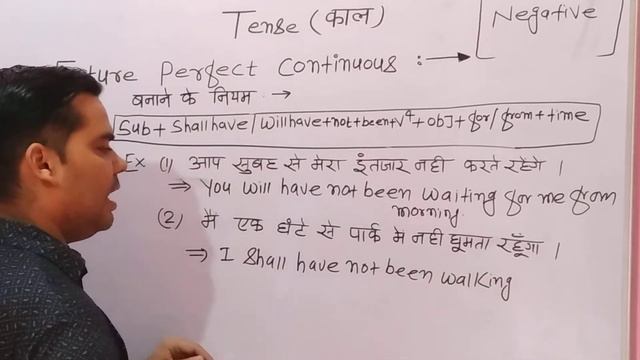 Tense (काल)
[Negative]
Future Perfect Continuous :- →
बनाने के नियम →
Sub + Shall have / Will have + not + been + V⁴ + obj + for / from + time
Ex (1) आप सुबह से मेरा इंतजार नही करते रहेंगे ।
⇒ You will have not been waiting for me from
morning.
(2) मै एक घंटे से पार्क मे नही घूमता रहूँगा ।
⇒ I Shall have not been walking